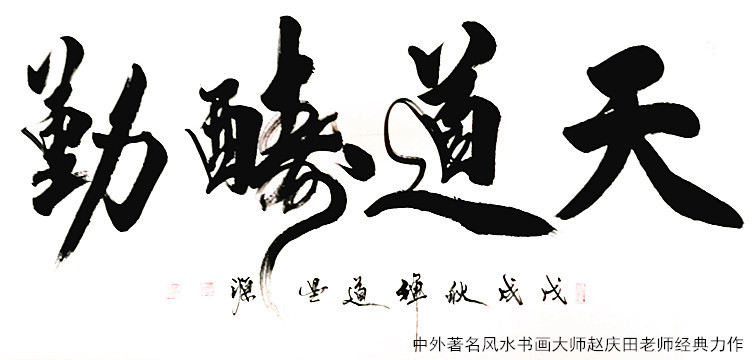 天道酬勤
戊戌秋禅道源
中外著名风水书画大师赵庆田老师经典力作